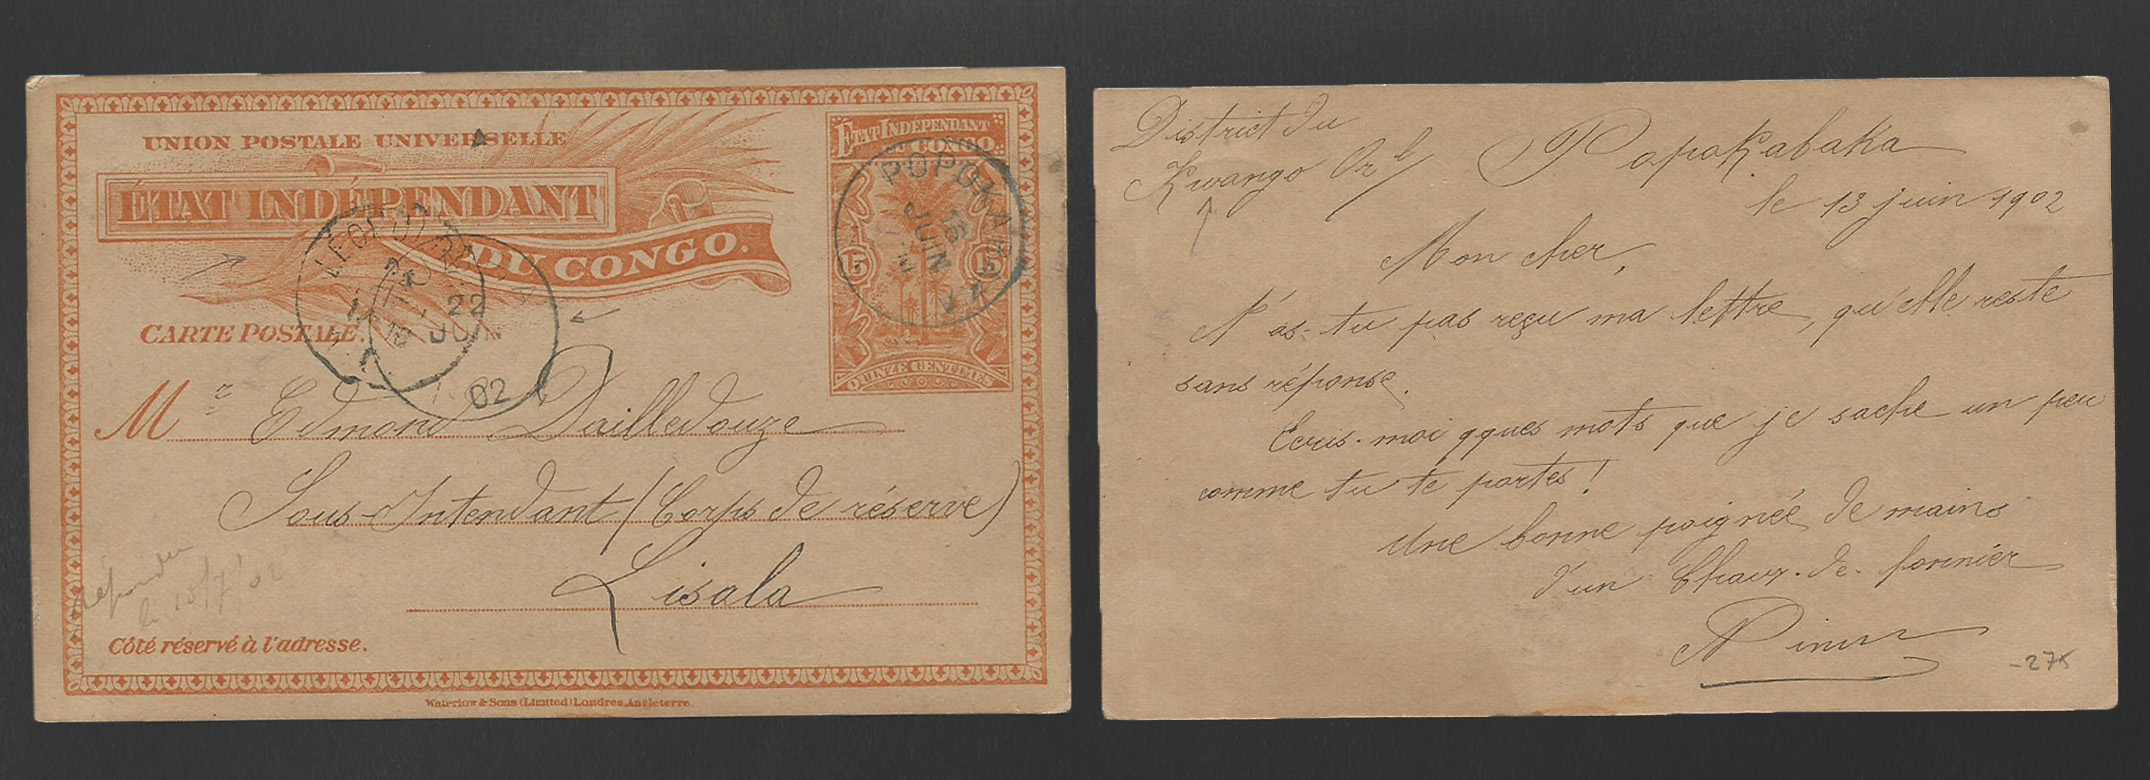 UNION POSTALE UNIVERSELLE
ÉTAT INDÉPENDANT
DU CONGO.
CARTE POSTALE.
ÉTAT INDÉPENDANT
DU CONGO
15 15
QUINZE CENTIMES
POPOKABAKA
16
JUIN
LEOPOLDV
22
JUIN
02
Mr Edmond Dailledouze
Sous-Intendant (Corps de réserve)
Lisala
répondu
le 15/7/02
Côté réservé à l'adresse.
Waterlow & Sons (Limited) Londres, Angleterre
District du
Kwango Orl/
Popokabaka
le 13 juin 1902
Mon cher,
N'as-tu pas reçu ma lettre, qu'elle reste
sans réponse.
Ecris-moi qques mots que je sache un peu
comme tu te portes!
Une bonne poignée de mains
d'un Chaux-de-fonnier
-275